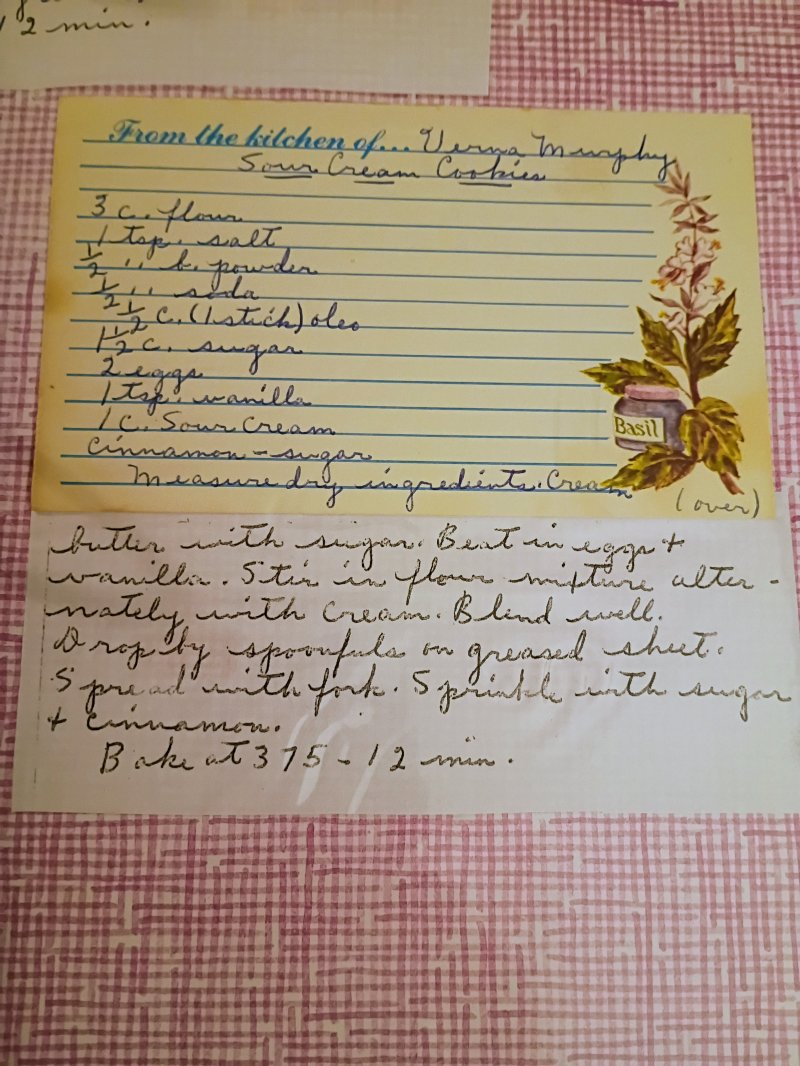 12 min.
From the kitchen of... Verna Murphy
Sour Cream Cookies
3 c. flour
1 tsp. salt
½ " b. powder
½ " soda
½ c. (1 stick) oleo
1½ c. sugar
2 eggs
1 tsp. vanilla
1 c. Sour Cream
Cinnamon - sugar
Measure dry ingredients. Cream
(over)
Basil
butter with sugar. Beat in eggs +
vanilla. Stir in flour mixture alter -
nately with Cream. Blend well.
Drop by spoonfuls on greased sheet.
Spread with fork. Sprinkle with sugar
+ cinnamon.
Bake at 375 - 12 min.